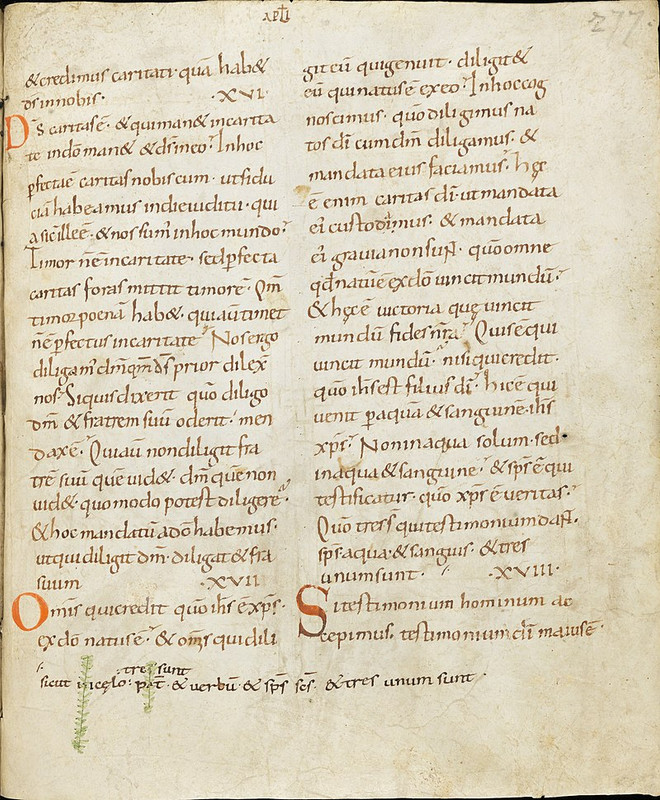 apłi
277
& credimus caritati· quā hab&
ds in nobis· ·XVI·
Ds caritas ē· & qui man& in carita
te in dō man& & ds in eo· In hoc
pfecta ē caritas nobiscum· ut fidu
ciā habeamus in die iudicii· qui
a sic ille ē· & nos sum' in hoc mundo·
Timor nē in caritate· sed pfecta
caritas foras mittit timorē· Qm̄
timor poenā hab&· qui autē timet
nē pfectus in caritate· Nos ergo
diligam' dm̄ qm̄ ds prior dilex̄
nos· Si quis dixerit quō diligo
dm̄ & fratrem suū oderit· men
dax ē· Qui aū non diligit fra
trē suū quē uid&· dm̄ quē non
uid&· quomodo potest diligere·
& hoc mandatū a dō habemus·
ut qui diligit dm̄· diligat & fra
suum ·XVII·
Omīs qui credit quō ihs ē xps·
ex dō natus ē· & oms qui dili
git eū qui genuit· diligit &
eū qui natus ē ex eo· In hoc cog
noscimus· quō diligimus na
tos dī cum dm̄ diligamus· &
mandata eius faciamus· Hęc
ē enim caritas dī· ut mandata
ei' custodimus· & mandata
ei' grauia non sunt· quō omne
qd natū ē ex dō uincit mundū·
& hęc ē uictoria quę uincit
mundū fides nr̄a· Quis ē qui
uincit mundū· nisi qui credit·
quō ihs est filius dī· Hic ē qui
uenit p aquā & sanguinē· ihs
xps· Non in aqua solum· sed
in aqua & sanguine· & sps ē qui
testificatur· quō xps ē ueritas·
Quō tres s' qui testimonium dant·
sps· aqua· & sanguis· & tres
unum sunt· ·XVIII·
Si testimonium hominum ac
cepimus· testimonium dī maius ē·
tres sunt
sicut in cęlo· pat̄· & uerbū· & sps scs· & tres unum sunt·